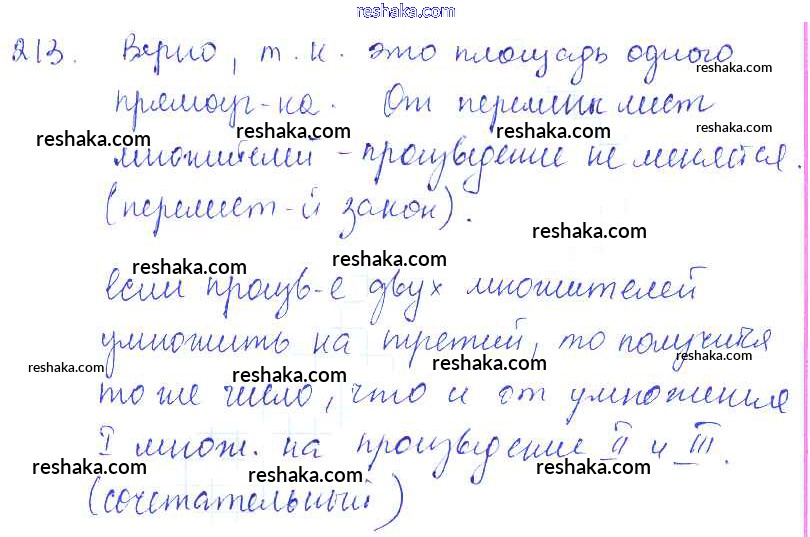 reshaka.com
213. Верно, т.к. это площадь одного
reshaka.com
прямоуг-ка. От перемены мест
reshaka.com reshaka.com reshaka.com
множителей - произведение не меняется.
(перемест-й закон).
reshaka.com
reshaka.com
если произв-е двух множителей
reshaka.com
умножить на третий, то получится
reshaka.com reshaka.com reshaka.com
reshaka.com
то же число, что и от умножения
reshaka.com
I множ. на произведение II и III.
reshaka.com reshaka.com reshaka.com
(сочетательный)